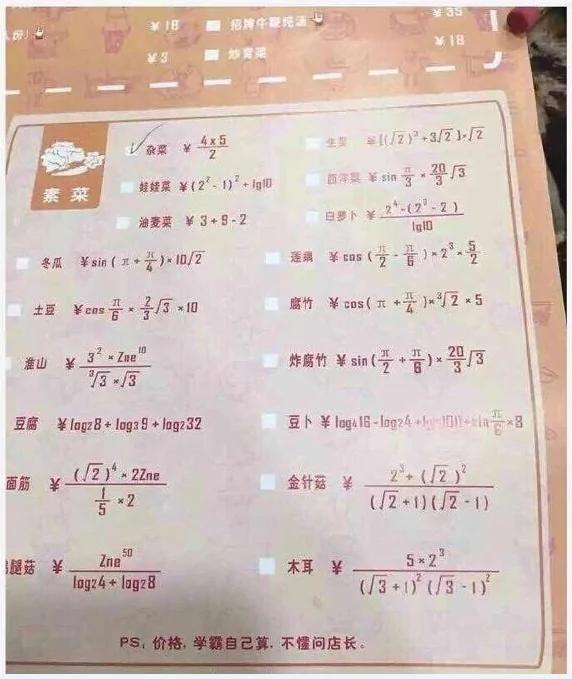 人份) ¥18 招牌牛腱炖汤 ¥35
¥3 炒青菜 ¥18
素菜
杂菜 ¥ 4×5/2
生菜 ¥[(√2)³+3√2]×√2
娃娃菜 ¥(2²-1)²+lg10
西洋菜 ¥ sin π/3 × 20/3 √3
油麦菜 ¥ 3+9-2
白萝卜 ¥ 2⁴-(2³-2)/lg10
冬瓜 ¥sin(π+π/4)×10√2
莲藕 ¥cos(π/2-π/6)×2³×5/2
土豆 ¥cos π/6 × 2/3 √3 ×10
腐竹 ¥cos(π+π/4)×³√2×5
淮山 ¥ 3²×Zne¹⁰/³√3×√3
炸腐竹 ¥sin(π/2+π/6)×20/3 √3
豆腐 ¥log28+log39+log232
豆卜 ¥log416-log24+ +sin π/6×8
面筋 ¥ (√2)⁴×2Zne/1/5×2
金针菇 ¥ 2³+(√2)²/(√2+1)(√2-1)
腿菇 ¥ Zne⁵⁰/log24+log28
木耳 ¥ 5×2³/(√3+1)²(√3-1)²
PS, 价格, 学霸自己算, 不懂问店长。